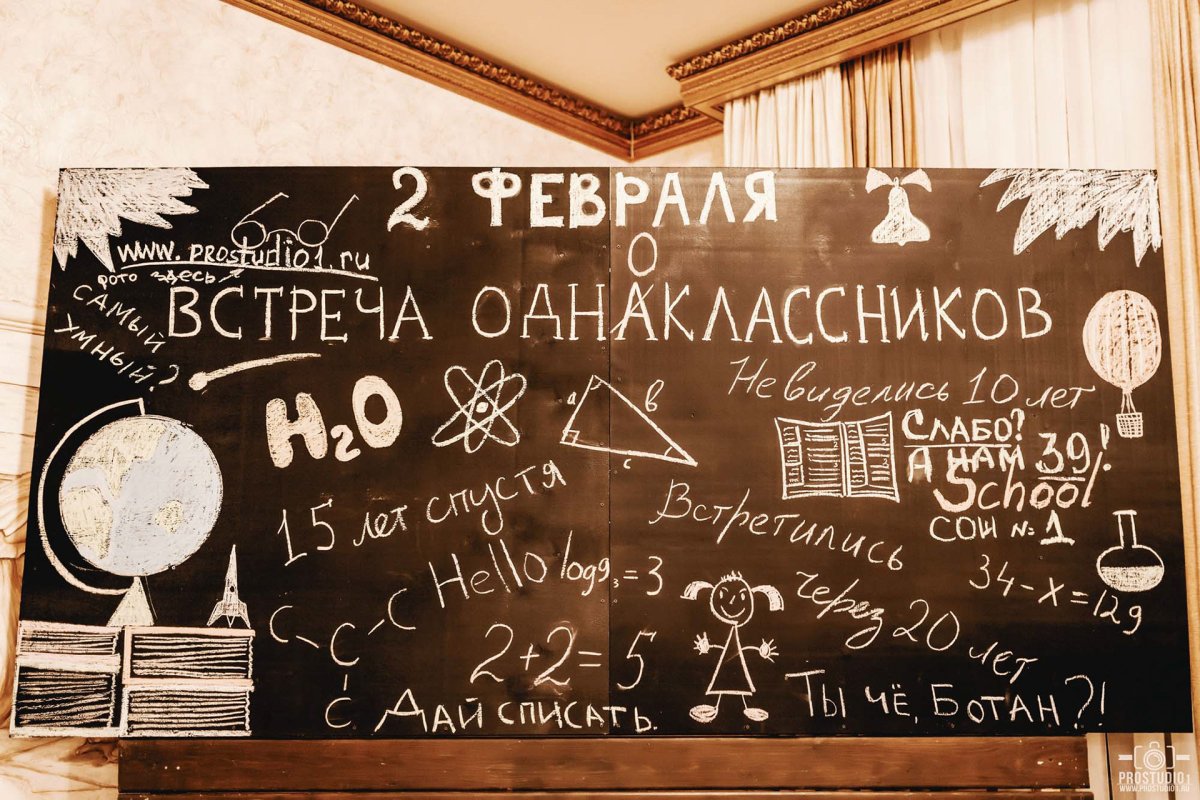 2 ФЕВРАЛЯ
www.prostudio1.ru
фото здесь
САМЫЙ
УМНЫЙ?
О
ВСТРЕЧА ОДНАКЛАССНИКОВ
Не виделись 10 лет
H2O
a
b
c
СЛАБО?
А НАМ 39!
School
СОШ № 1
15 лет спустя
Встретились
через 20 лет
Hello
log9 3 = 3
34 - x = 129
C
C
C
C
2+2= 5
ДАЙ СПИСАТЬ.
ТЫ ЧЁ, БОТАН?!
PROSTUDIO1
WWW.PROSTUDIO1.RU